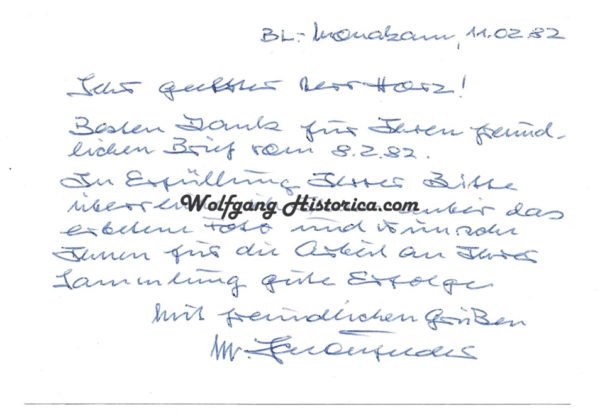 BL.-Monakam, 11.02.82
Sehr geehrter Herr Harz!
Besten Dank für Ihren freund-
lichen Brief vom 8.2.82.
In Erfüllung Ihrer Bitte
das
Wolfgang Historica.com
erbetene Foto und wünsche
Ihnen für die Arbeit an Ihrer
Sammlung gute Erfolge
Mit freundlichen Grüßen